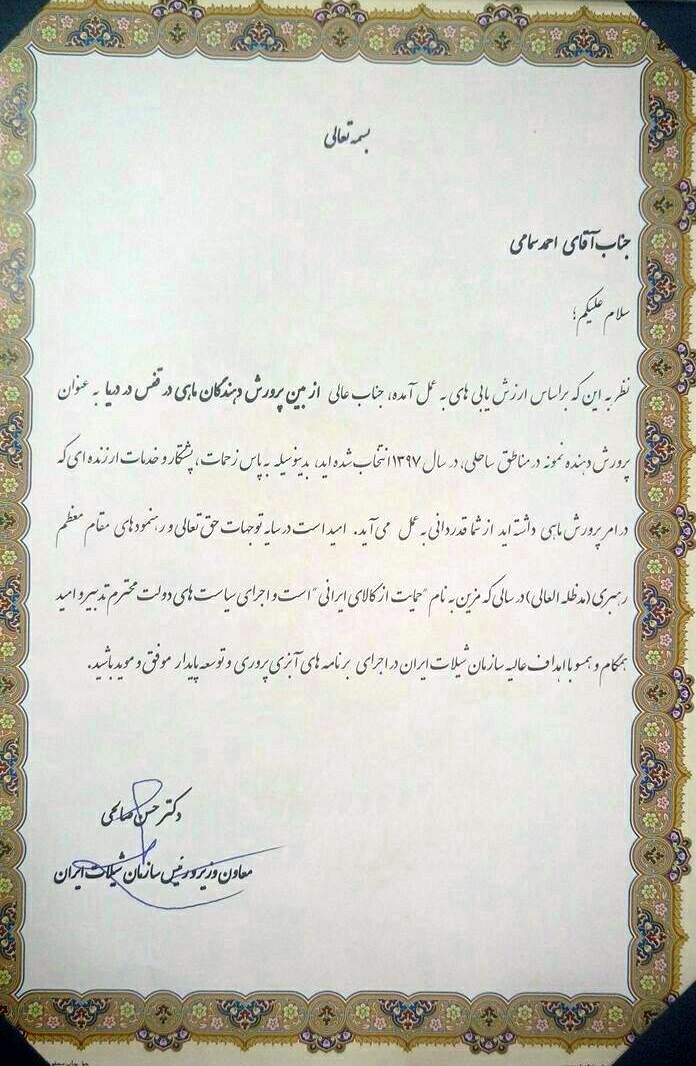 بسمه تعالی
جناب آقای احمد سامی
سلام علیکم؛
نظر به این که براساس ارزش یابی های به عمل آمده، جناب عالی از بین پرورش دهندگان ماهی در قفس در دریا به عنوان
پرورش دهنده نمونه در مناطق ساحلی، در سال ۱۳۹۷ انتخاب شده اید، بدینوسیله به پاس زحمات، پشتکار و خدمات ارزنده ای که
در امر پرورش ماهی داشته اید از شما قدردانی به عمل می آید. امید است در سایه توجهات حق تعالی و رهنمودهای مقام معظم
رهبری (مدظله العالی) در سالی که مزین به نام "حمایت از کالای ایرانی" است و اجرای سیاست های دولت محترم تدبیر و امید
همگام و همسو با اهداف عالیه سازمان شیلات ایران در اجرای برنامه های آبزی پروری و توسعه پایدار موفق و موید باشید.
دکتر حسن صالحی
معاون وزیر و رئیس سازمان شیلات ایران